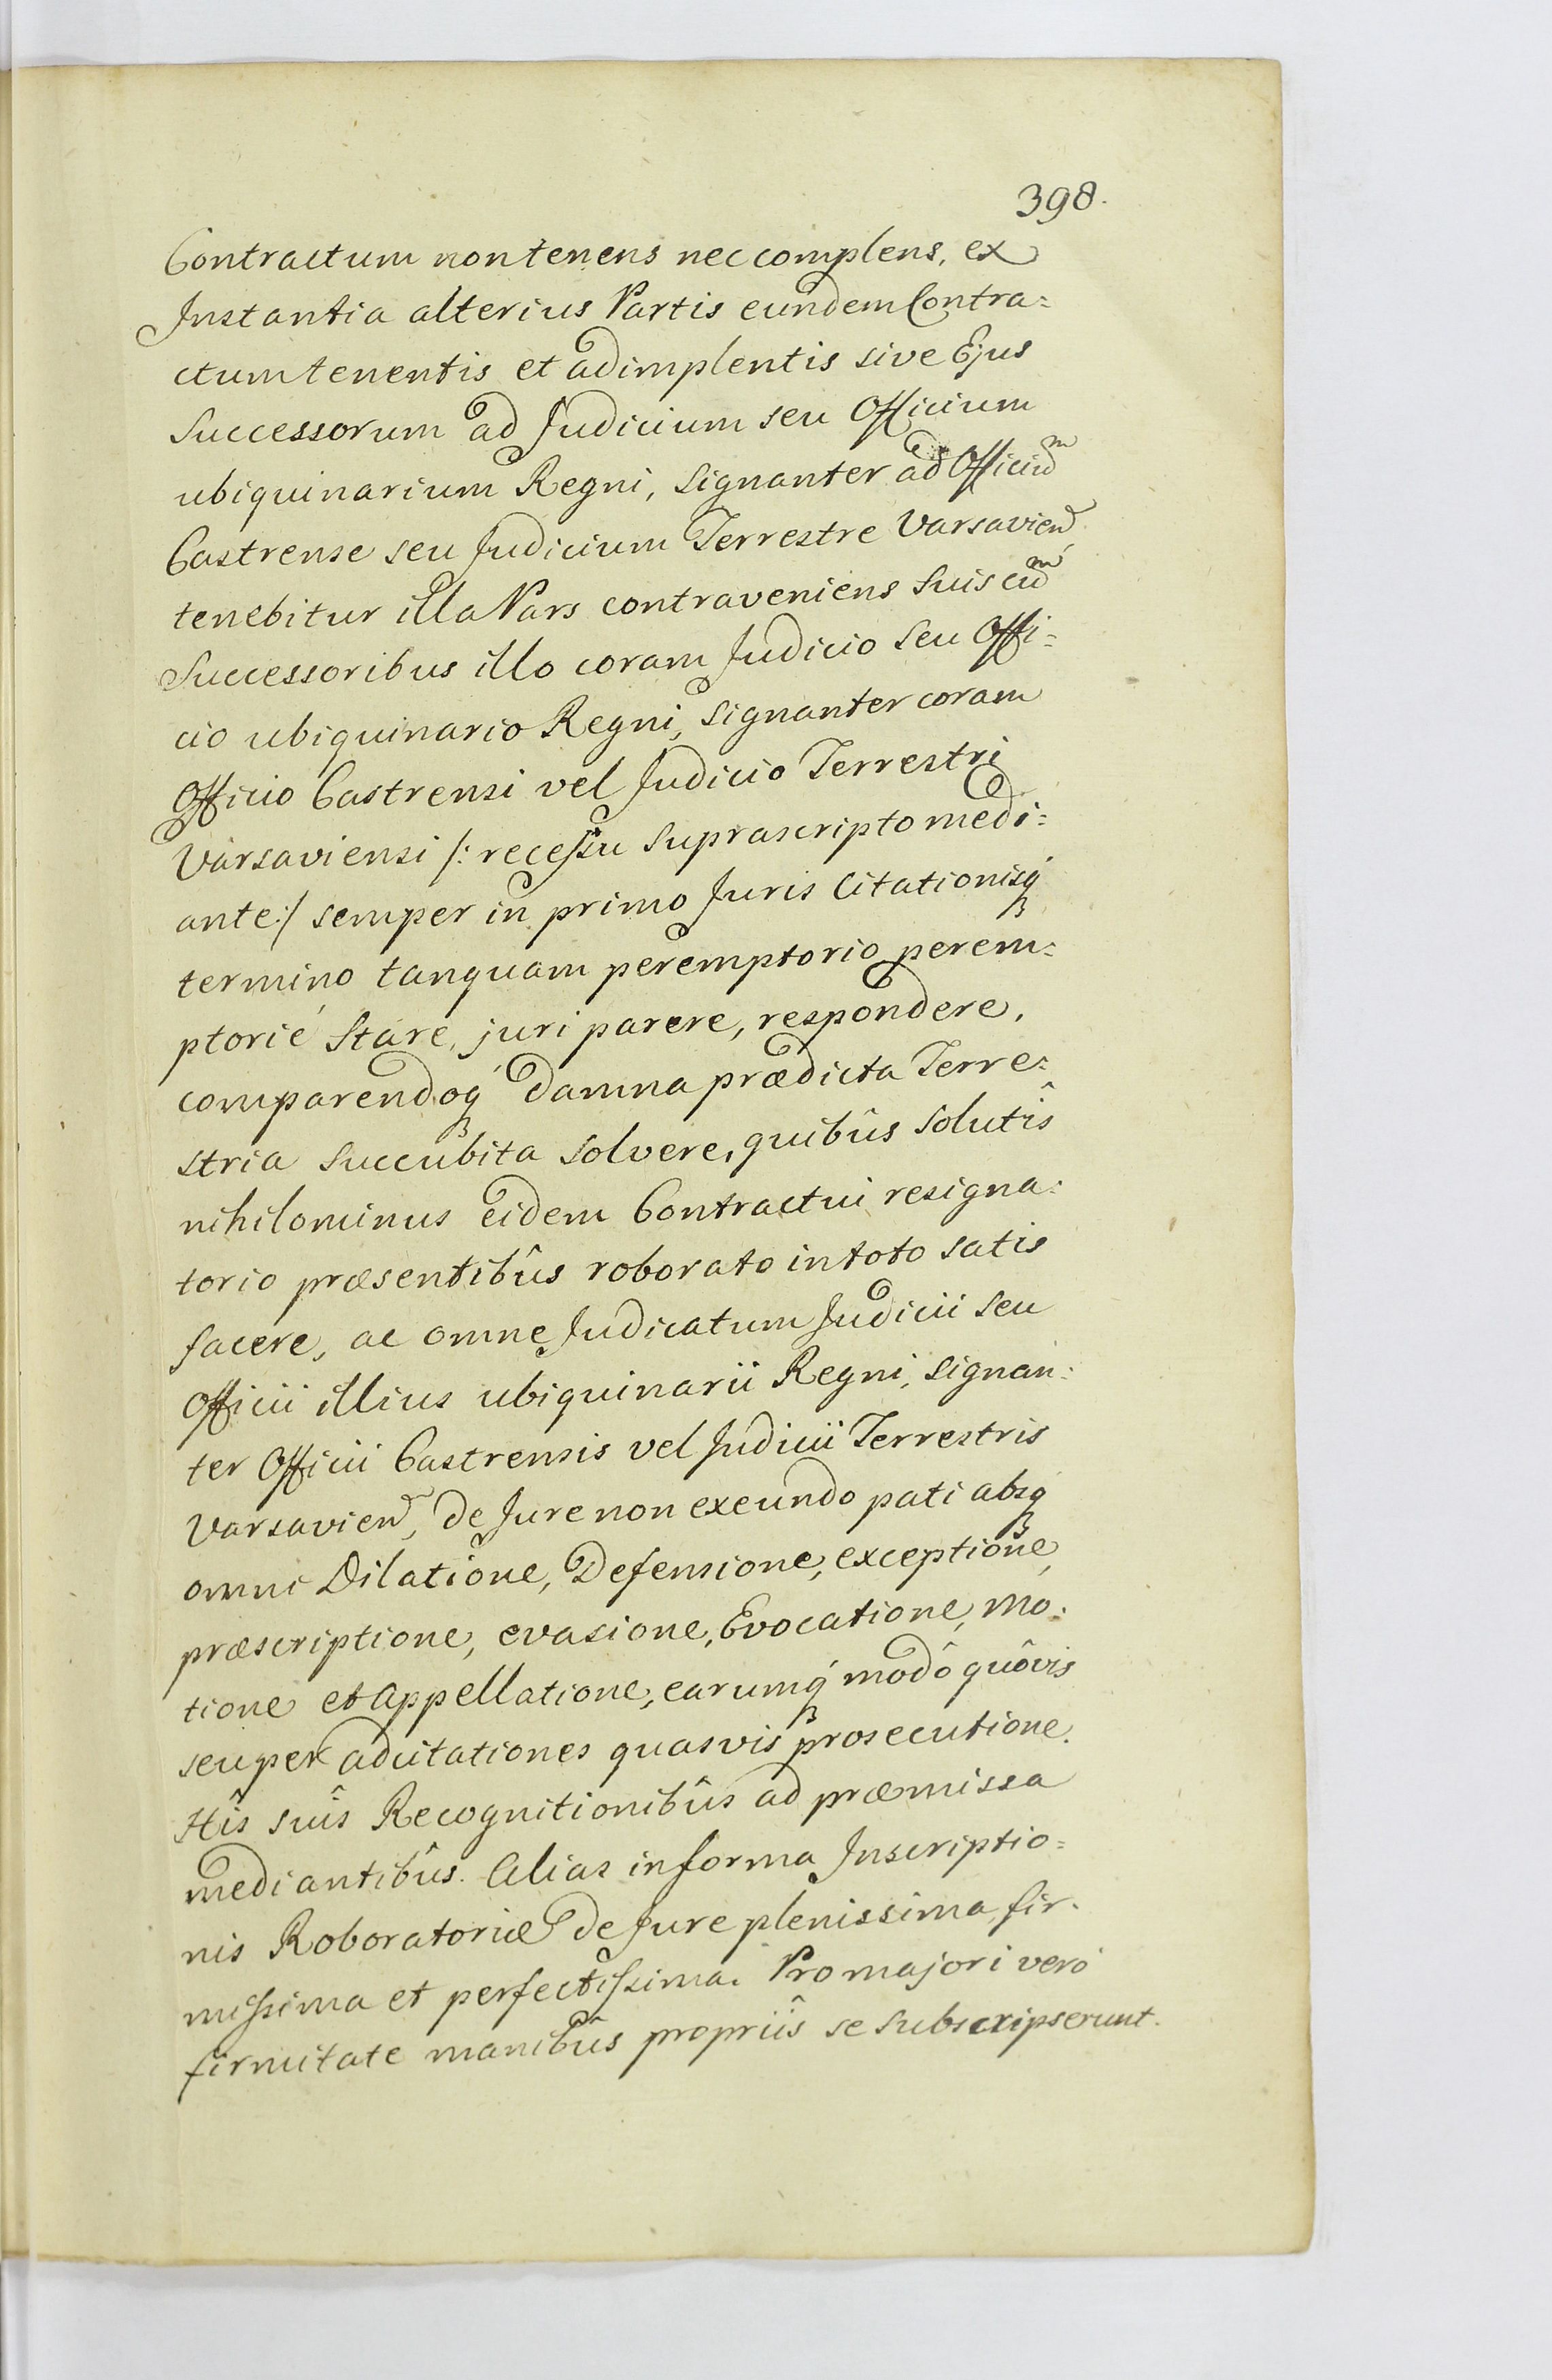 398.
Contractum non tenens nec complens, ex
Instantia alterius Partis eundem Contra=
ctum tenentis et adimplentis sive Ejus
Successorum ad Judicium seu Officium
ubiquinarium Regni, signanter ad Officiũm
Castrense seu Judicium Terrestre Varsavien̄
tenebitur illa Pars contraveniens suis cum
Successoribus illo coram Judicio seu Offi=
cio ubiquinario Regni, signanter coram
Officio Castrensi vel Judicio Terrestri
Varsaviensi /: recessu suprascripto medi=
ante :/ semper in primo Juris Citationisq́
termino tanquam peremptorio perem=
ptorié stare, juri parere, respondere,
comparendoq́ damna prædicta Terre=
stria succubita solvere, quibûs solutîs
nihilominus eidem Contractui resigna=
torio præsentibûs roborato in toto satis
facere, ac omne Judicatum Judicii seu
Officii illius ubiquinarii Regni, signan=
ter Officii Castrensis vel Judicii Terrestris
Varsavien̄, de Jure non exeundo pati absq́
omni Dilatione, Defensione, exceptione,
præscriptione, evasione, Evocatione, mo=
tione et appellatione, earumq́ modô quôvis
seu per adcitationes quasvis prosecutione.
Hîs suîs Recognitionibûs ad præmissa
mediantibûs. Alias in forma Inscriptio=
nis Roboratoriæ de Jure plenissima, fir=
missima et perfectissima. Pro majori veró
firmitate manibûs propriîs se subscripserunt.